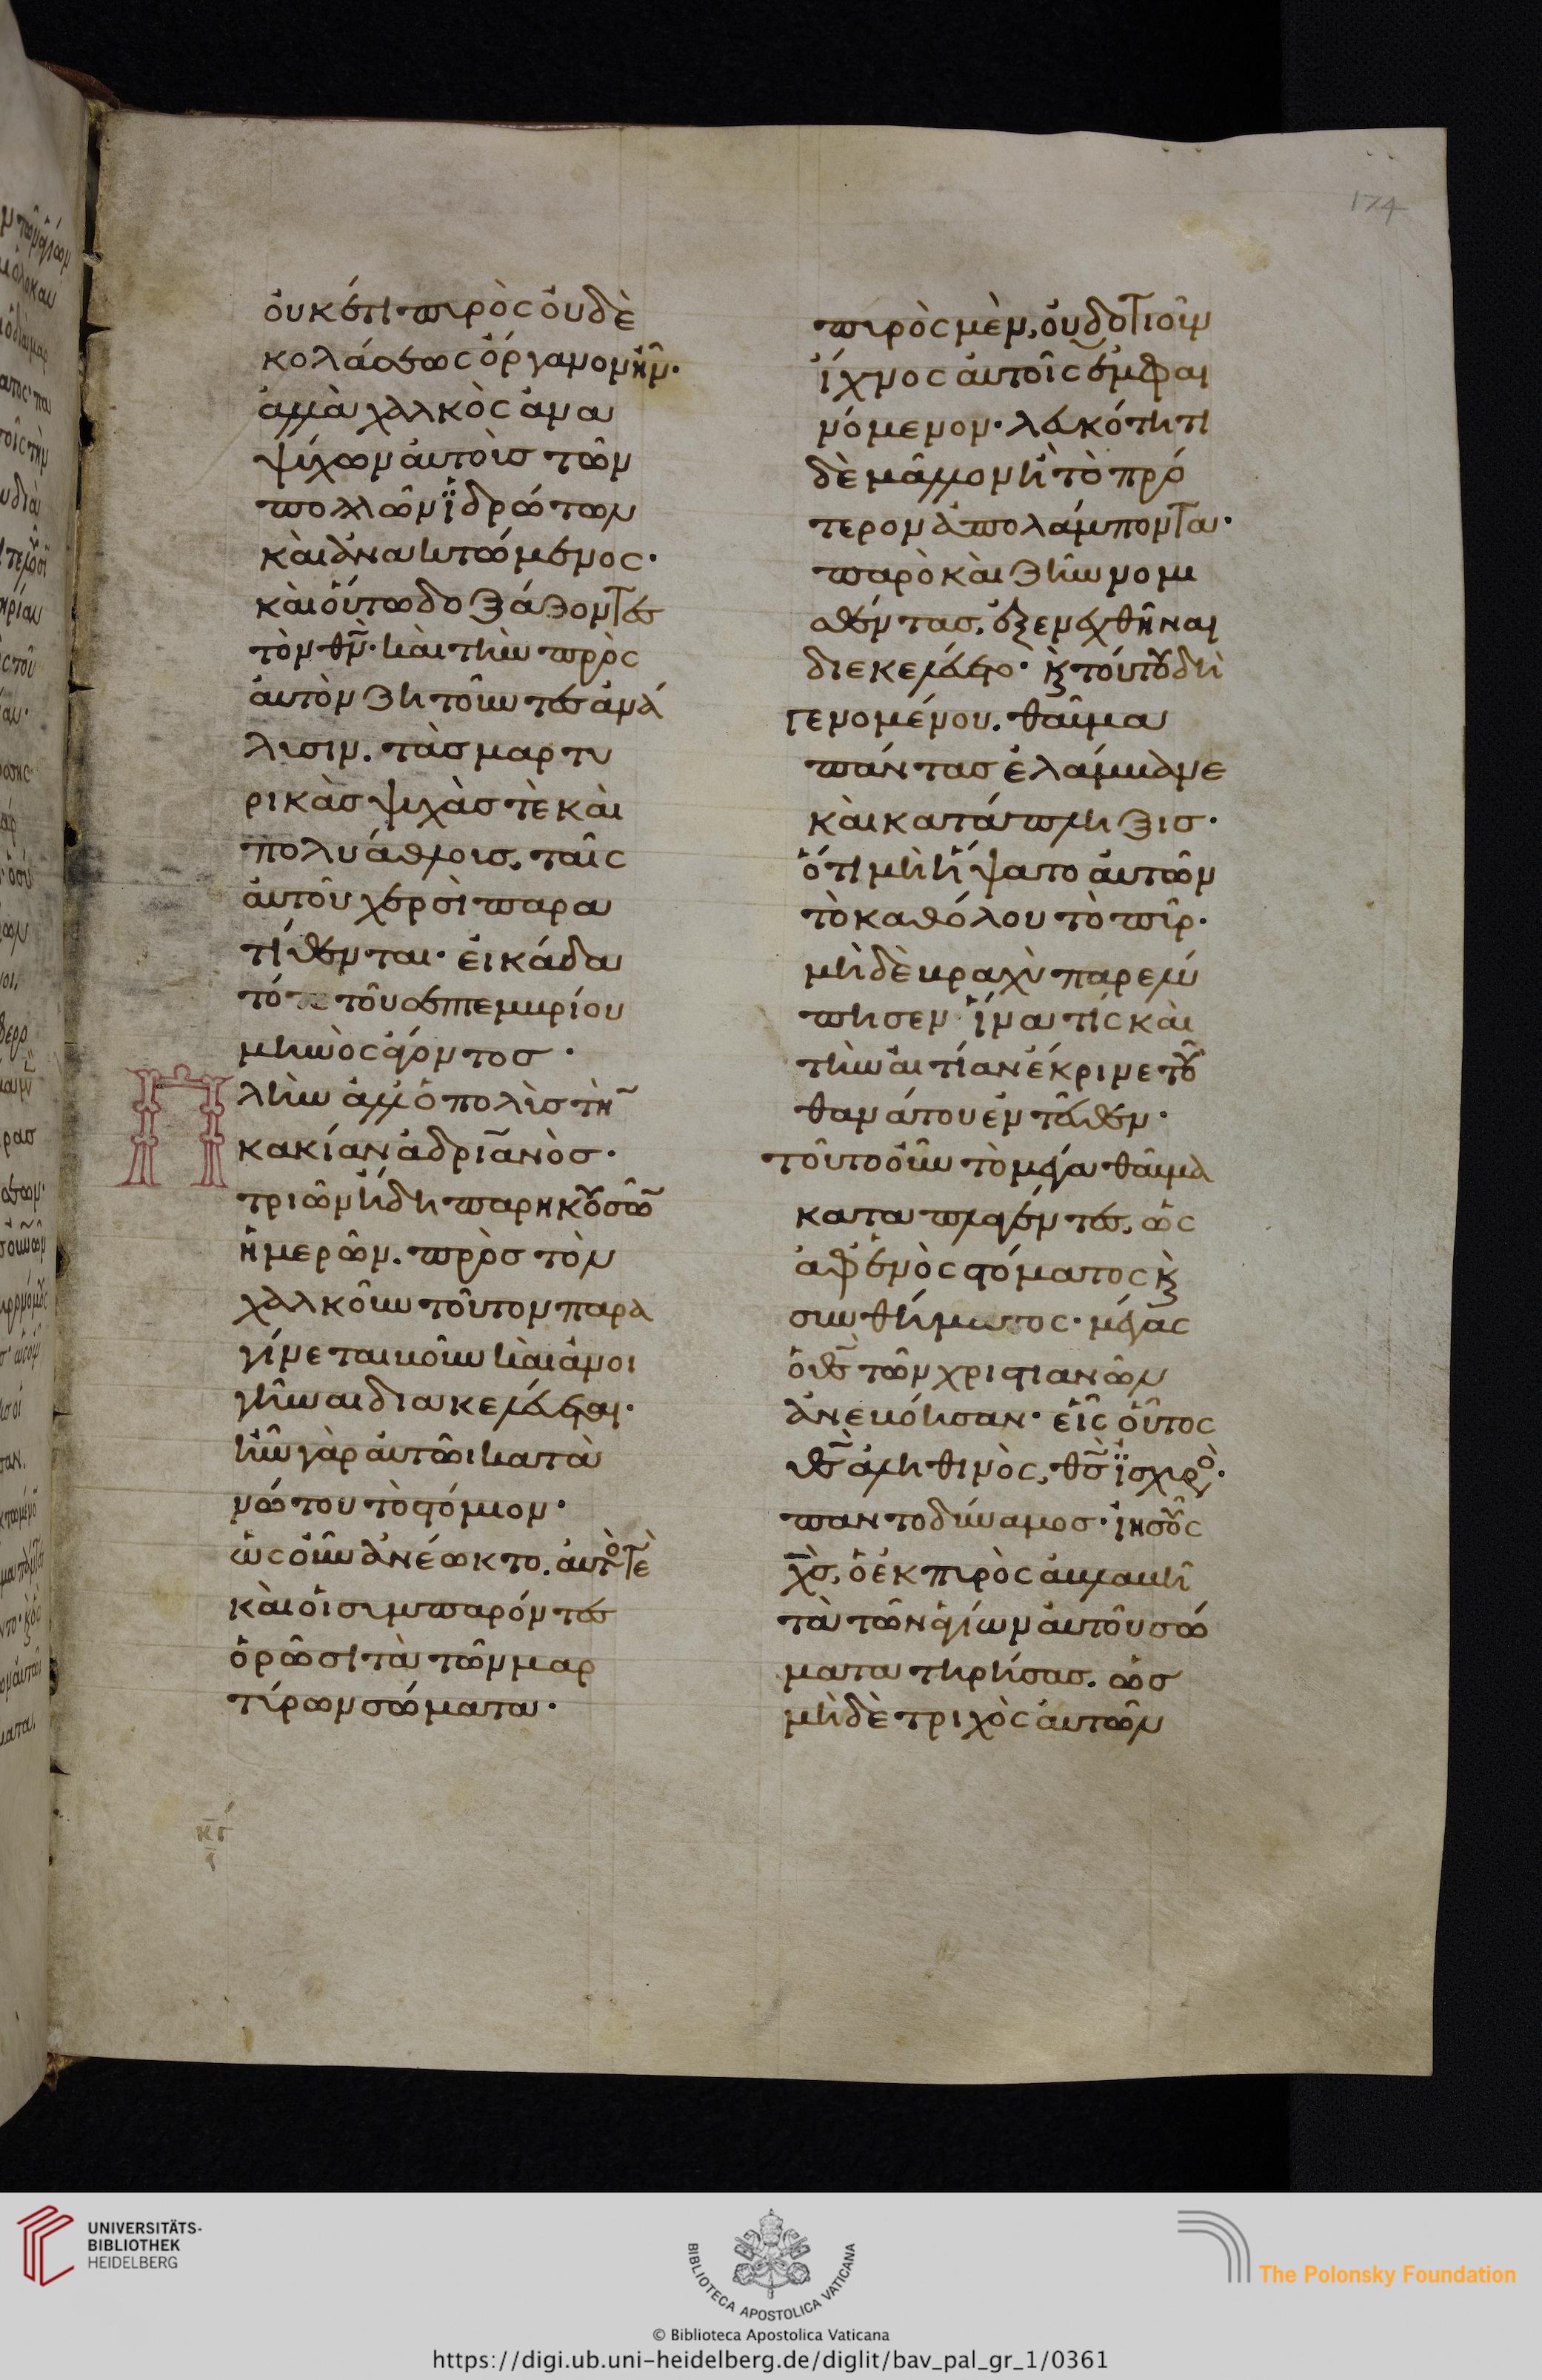 174
οὐκέτι πυρὸς οὐδὲ
κολάσεως ὄργανον ἦν·
ἀλλὰ χαλκὸς ἀνα
ψύχων αὐτοὺς τῶν
πολλῶν ἱδρώτων
καὶ ἀνακτώμενος·
καὶ οὕτω δοξάζοντες
τὸν θν̄· καὶ τὴν πρὸς
αὐτὸν ζητοῦντες ἀνά
λυσιν. τὰς μαρτυ
ρικὰς ψυχὰς τὲ καὶ
πολυάθλους, ταῖς
αὐτοῦ χερσὶ παρα
τίθενται· εἰκάδα
τότε τοῦ σεπτεμβρίου
μηνὸς ἄγοντος·
Πλὴν ἀλλ' ὁ πολὺς τὴν
κακίαν ἀδριανὸς·
τριῶν ἤδη παρηκουσῶν
ἡμερῶν. πρὸς τὸν
χαλκοῦν τοῦτον παρα
γίνεται βοῦν καὶ ἀνοι
γῆναι διακελεύεται·
ἦν γὰρ αὐτῶι κατὰ
νώτου τὸ στόμιον·
ὡς οὖν ἀνέωκτο. αὐτός τε
καὶ οἱ συμπαρόντες
ὁρῶσι τὰ τῶν μαρ
τύρων σώματα·
πυρὸς μὲν, οὐδοτιοῦν
ἴχνος αὐτοῖς ἐμφαι
νόμενον· λευκότητι
δὲ μᾶλλον ἢ τὸ πρό
τερον ἀπολάμποντα·
παρὸ καὶ ζῆν νομι
σθέντας, ἐξενεχθῆναι
διεκελεύετο· καὶ τούτου δὴ
γενομένου. θαῦμα
πάντας ἐλάμβανε
καὶ κατάπληξις·
ὅτι μὴ ἥψατο αὐτῶν
τὸ καθόλου τὸ πῦρ·
μηδὲ βραχὺ παρελύ
πησεν ἵνα τίς καὶ
τὴν αἰτίαν ἔκρινε τοῦ
θανάτου ἐντεῦθεν·
τοῦτο οὖν τὸ μέγα θαῦμα
καταπλαγέντες, ὡς
ἀφ' ἑνὸς στόματος καὶ
συνθήματος· μέγας
ὁ θς̄ τῶν χριστιανῶν
ἀνεβόησαν· εἷς οὗτος
θς̄ ἀληθινὸς, θς̄ ἰσχυρός·
παντοδύναμος· ἰησοῦς
χς̄, ὁ ἐκ πυρὸς ἀβλαβῆ
τὰ τῶν ἁγίων αὐτοῦ σώ
ματα τηρήσας. ὡς
μηδὲ τριχὸς αὐτῶν
UNIVERSITÄTS-
BIBLIOTHEK
HEIDELBERG
BIBLIOTECA APOSTOLICA VATICANA
The Polonsky Foundation
© Biblioteca Apostolica Vaticana
https://digi.ub.uni-heidelberg.de/diglit/bav_pal_gr_1/0361